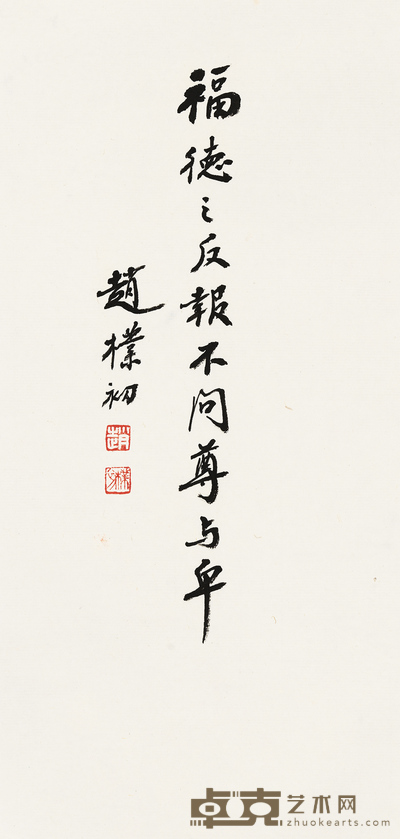 福德之反報不问尊与卑
趙樸初
趙
樸初
卓克艺术网
zhuokearts.com